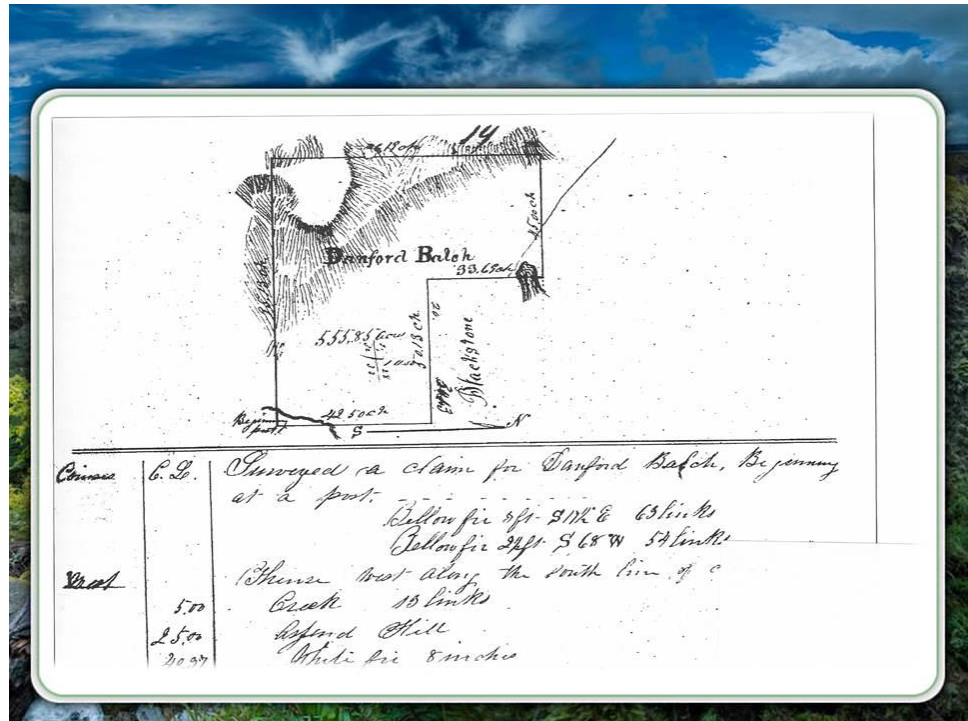 14
Danford Balch
33.65 ch
555.85 acres
50.13 ch.
20.
Blackstone
Beginning
post
42.50 ch
S
N
Courses C. L. Surveyed a claim for Danford Balch, Beginning
at a post.
Yellow fir S E 63 links
Yellow fir 24 ft S 68 W 54 links
West Thence west along the south line of c
5.00 Creek 13 links
25.00 Ascend Hill
40.97 White fir 8 inches